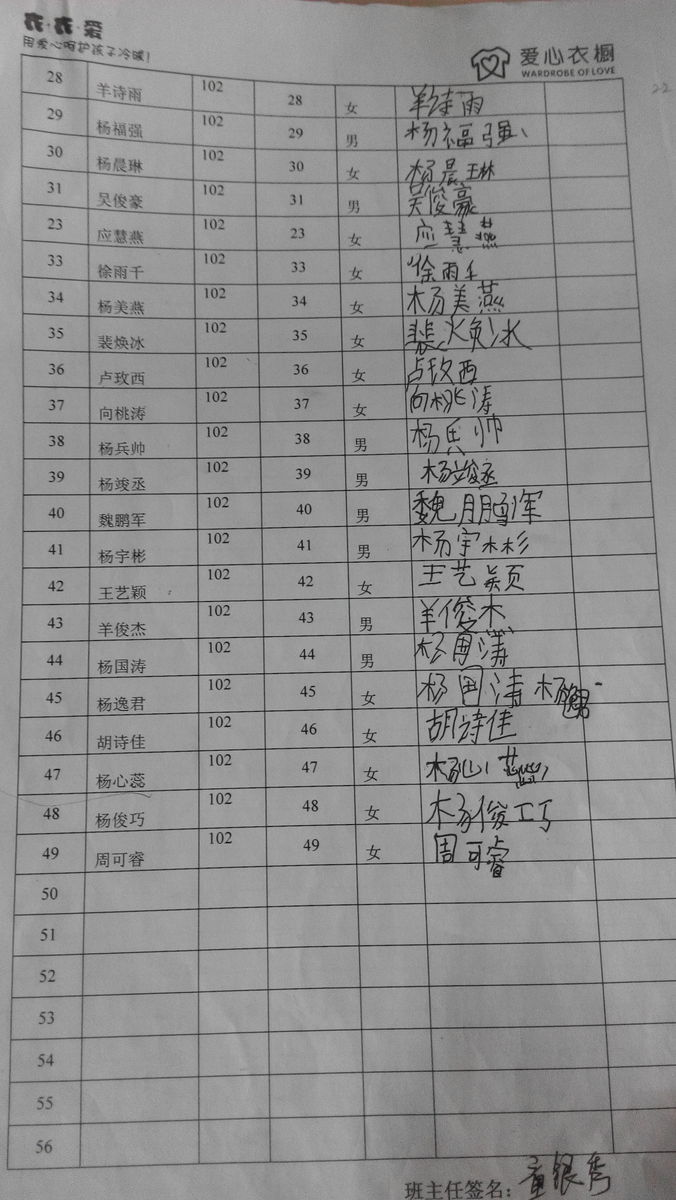 衣·衣·爱
用爱心呵护孩子冷暖!
爱心衣橱
WARDROBE OF LOVE
28 羊诗雨 102 28 女 羊诗雨
29 杨福强 102 29 男 杨福强
30 杨晨琳 102 30 女 杨晨琳
31 吴俊豪 102 31 男 吴俊豪
23 应慧燕 102 23 女 应慧燕
33 徐雨千 102 33 女 徐雨千
34 杨美燕 102 34 女 杨美燕
35 裴焕冰 102 35 女 裴焕冰
36 卢玫西 102 36 女 卢玫西
37 向桃涛 102 37 女 向桃涛
38 杨兵帅 102 38 男 杨兵帅
39 杨竣丞 102 39 男 杨竣丞
40 魏鹏军 102 40 男 魏鹏军
41 杨宇彬 102 41 男 杨宇彬
42 王艺颖 102 42 女 王艺颖
43 羊俊杰 102 43 男 羊俊杰
44 杨国涛 102 44 男 杨国涛
45 杨逸君 102 45 女 杨国涛 杨
46 胡诗佳 102 46 女 胡诗佳
47 杨心蕊 102 47 女 杨心蕊
48 杨俊巧 102 48 女 杨俊巧
49 周可睿 102 49 女 周可睿
50
51
52
53
54
55
56
班主任签名: 银秀